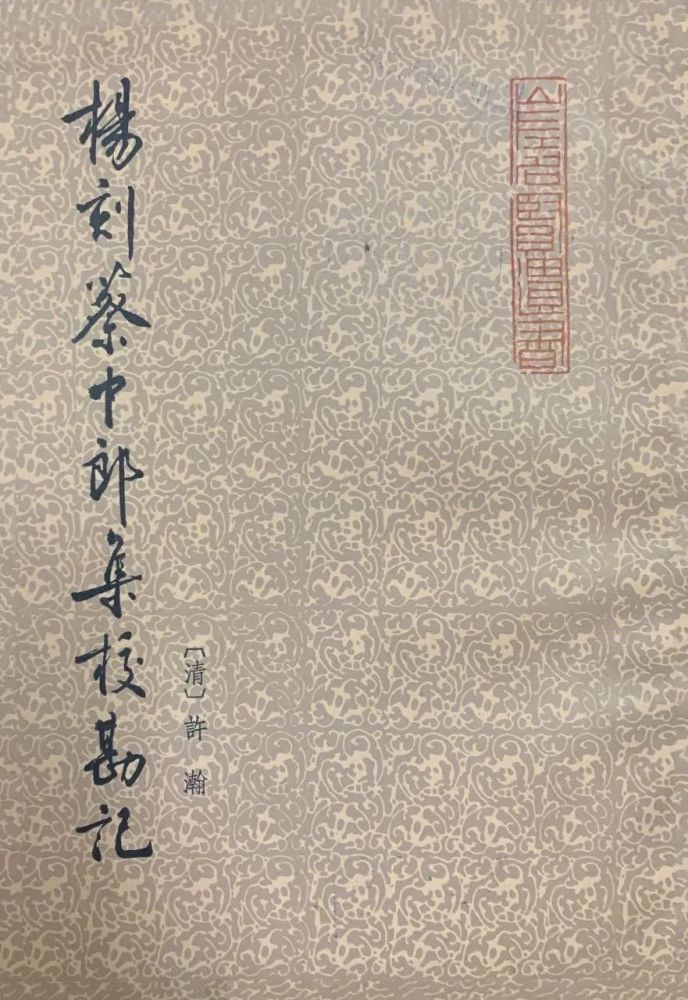 楊刻蔡中郎集校勘記
〔清〕許瀚